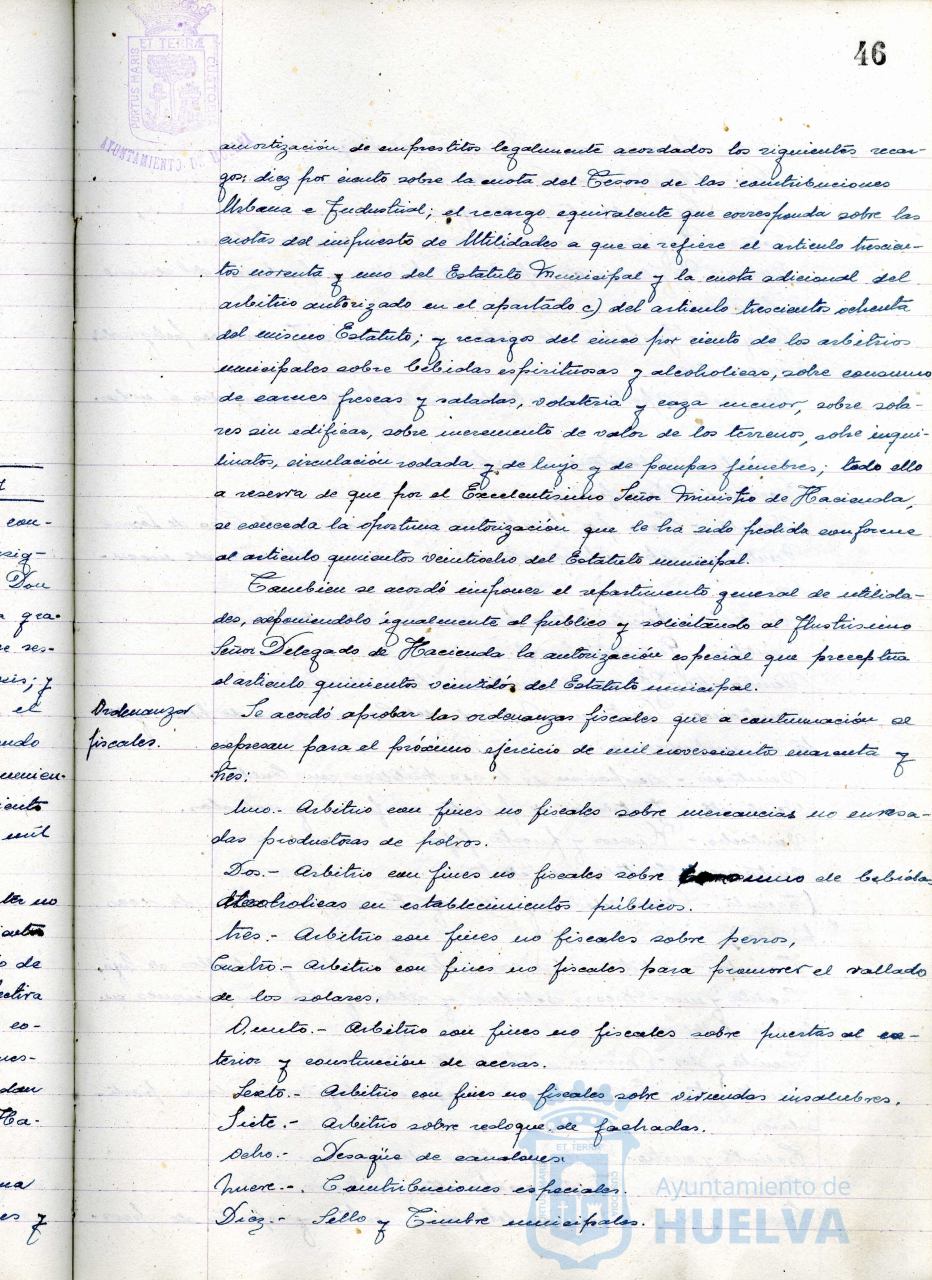 46
ET TERRÆ
PORTUS MARIS
CUSTODIA
AYUNTAMIENTO DE
amortización de emprestitos legalmente acordados los siguientes recar-
gos: diez por ciento sobre la cuota del Tesoro de las contribuciones
Urbana e Industrial; el recargo equivalente que corresponda sobre las
cuotas del impuesto de Utilidades a que se refiere el articulo trescien-
tos noventa y uno del Estatuto Municipal y la cuota adicional del
arbitrio autorizado en el apartado c) del articulo trescientos ochenta
del mismo Estatuto; y recargos del cinco por ciento de los arbitrios
municipales sobre bebidas espirituosas y alcoholicas, sobre consumo
de carnes frescas y saladas, volateria y caza menor, sobre sola-
res sin edificar, sobre incremento de valor de los terrenos, sobre inqui-
linatos, circulación rodada y de lujo y de pompas fúnebres; todo ello
a reserva de que por el Excelentisimo Señor Ministro de Hacienda,
se conceda la oportuna autorización que le ha sido pedida conforme
al articulo quinientos veintiocho del Estatuto municipal.
Tambien se acordó imponer el repartimiento general de utilida-
des, exponiendolo igualmente al publico y solicitando al Ilustrisimo
Señor Delegado de Hacienda la autorización especial que preceptua
el articulo quinientos veintidós del Estatuto municipal.
Ordenanzas
fiscales.
Se acordó aprobar las ordenanzas fiscales que a continuación se
expresan para el próximo ejercicio de mil novescientos cuarenta y
tres:
Uno.- Arbitrio con fines no fiscales sobre mercancias no envasa-
das productoras de polvos.
Dos.- Arbitrio con fines no fiscales sobre consumo de bebidas
alcoholicas en establecimientos públicos.
tres.- Arbitrio con fines no fiscales sobre perros,
Cuatro.- Arbitrio con fines no fiscales para promover el vallado
de los solares.
Quinto.- Arbitrio con fines no fiscales sobre puertas al ex-
terior y construcción de aceras.
Sexto.- Arbitrio con fines no fiscales sobre viviendas insalubres.
Siete.- Arbitrio sobre revoque de fachadas.
Ocho.- Desagüe de canalones.
Nueve.- Contribuciones especiales.
Diez.- Sello y Timbre municipales.
Ayuntamiento de
HUELVA